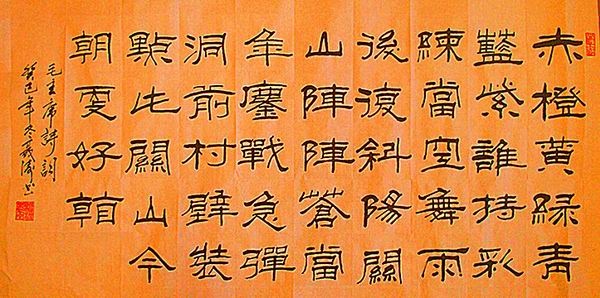 赤橙黃綠青
藍紫誰持彩
練當空舞雨
後復斜陽關
山陣陣蒼當
年鏖戰急彈
洞前村壁裝
點此關山今
朝更好看
毛主席詩詞
癸巳年冬